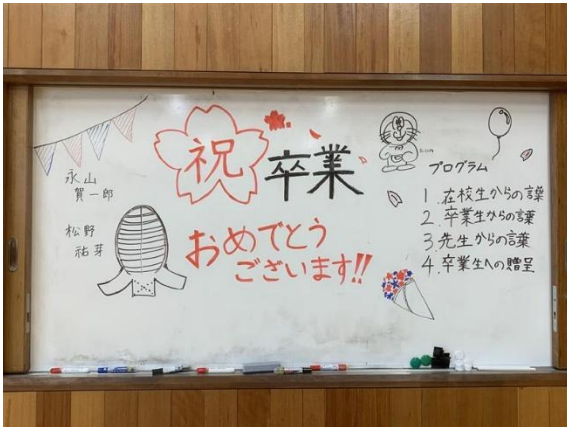 祝 卒業
おめでとう
ございます!!
永山
賀一郎
松野
祐芽
プログラム
1.在校生からの言葉
2.卒業生からの言葉
3.先生からの言葉
4.卒業生への贈呈